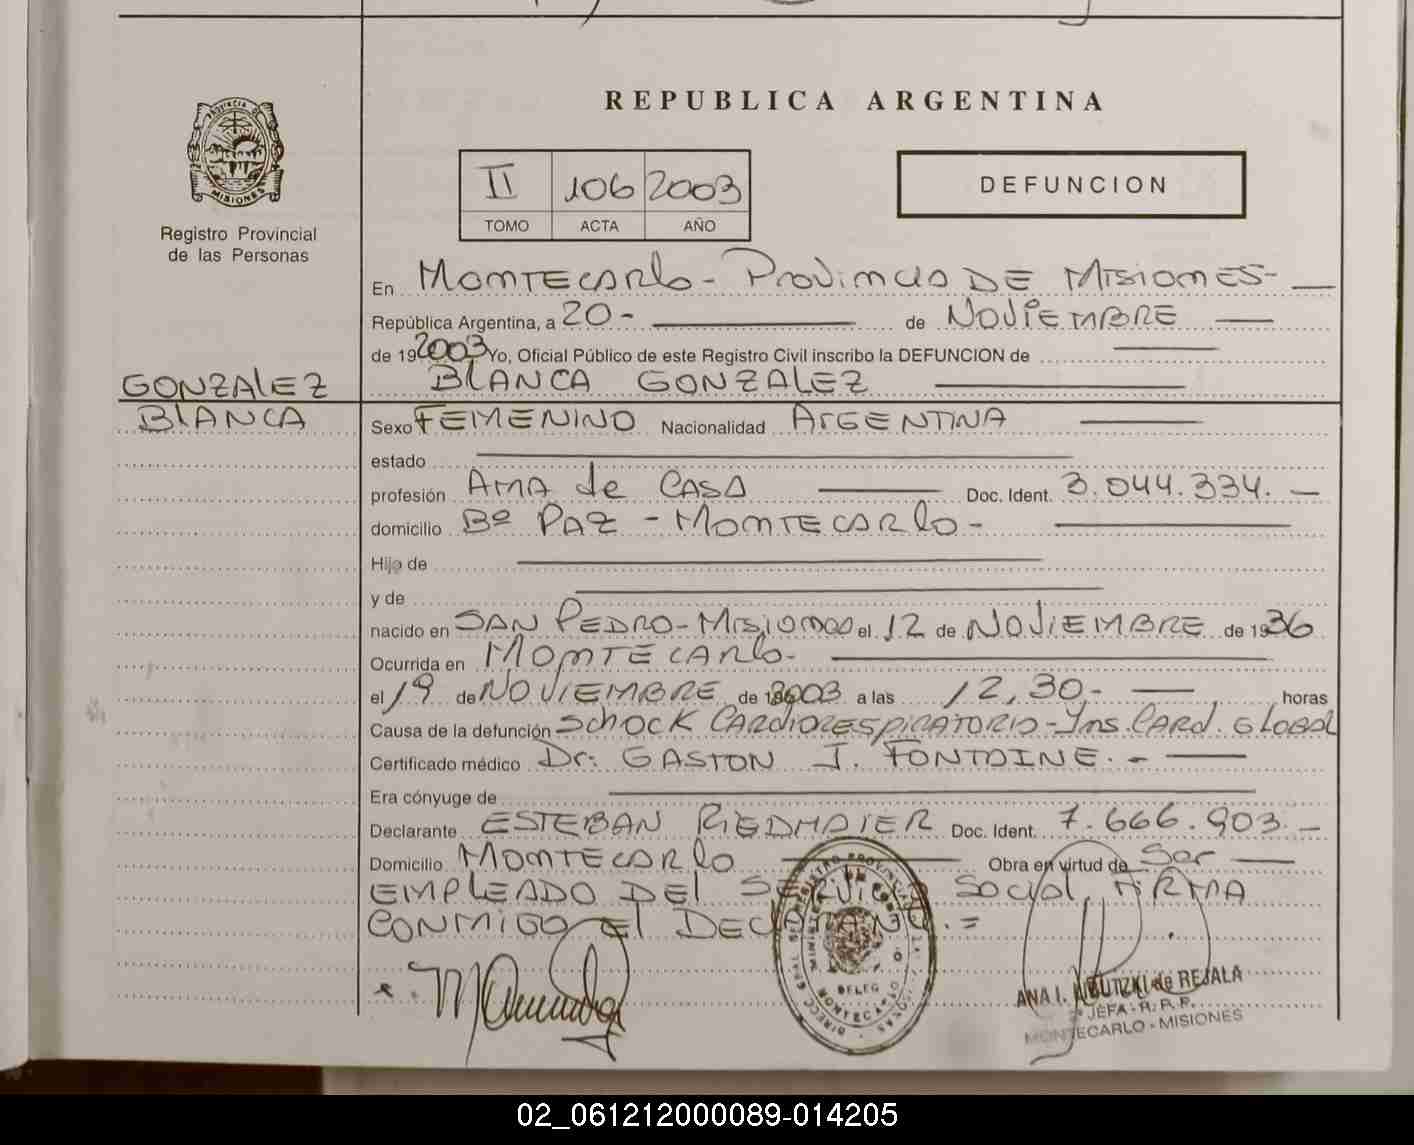 REPUBLICA ARGENTINA
PROVINCIA DE
MISIONES
Registro Provincial
de las Personas
II 106 2003
TOMO ACTA AÑO
DEFUNCION
En MONTECARLO - PROVINCIA DE MISIONES-
República Argentina, a 20- de NOVIEMBRE
de 192003 Yo, Oficial Público de este Registro Civil inscribo la DEFUNCION de
BLANCA GONZALEZ
GONZALEZ
BLANCA
Sexo FEMENINO Nacionalidad ARGENTINA
estado
profesión AMA de CASA Doc. Ident. 3.044.334.
domicilio Bº PAZ - MONTECARLO -
Hijo de
y de
nacido en SAN PEDRO - MISIONES el 12 de NOVIEMBRE de 1936
Ocurrida en MONTECARLO-
el 19 de NOVIEMBRE de 2003 a las 12,30- horas
Causa de la defunción SCHOCK CARDIORESPIRATORIO - INS. CARD. GLOBAL
Certificado médico Dr. GASTON J. FONTAINE.-
Era cónyuge de
Declarante ESTEBAN RIEDMAIER Doc. Ident. 7.666.903.
Domicilio MONTECARLO Obra en virtud de Ser
EMPLEADO DEL SERVICIO SOCIAL, FIRMA
CONMIGO el DECLARANTE.=
DELEG
MONTECARLO
ANA I. de REJALA
JEFA - R. P. P.
MONTECARLO - MISIONES
02_061212000089-014205